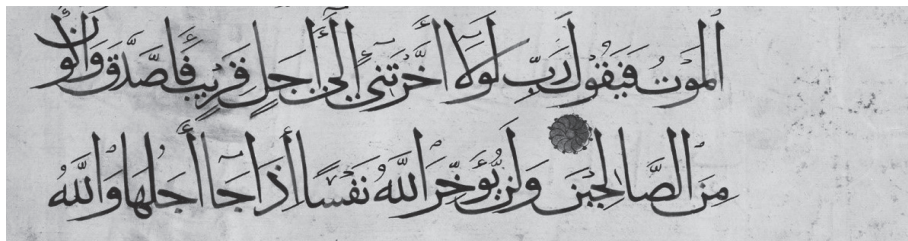 الْمَوْتُ فَيَقُولَ رَبِّ لَوْلَا أَخَّرْتَنِي إِلَىٰ أَجَلٍ قَرِيبٍ فَأَصَّدَّقَ وَأَكُونْ
مِنَ الصَّالِحِينَ وَلَنْ يُؤَخِّرَ اللَّهُ نَفْسًا إِذَا جَا أَجَلُهَا وَاللَّهُ